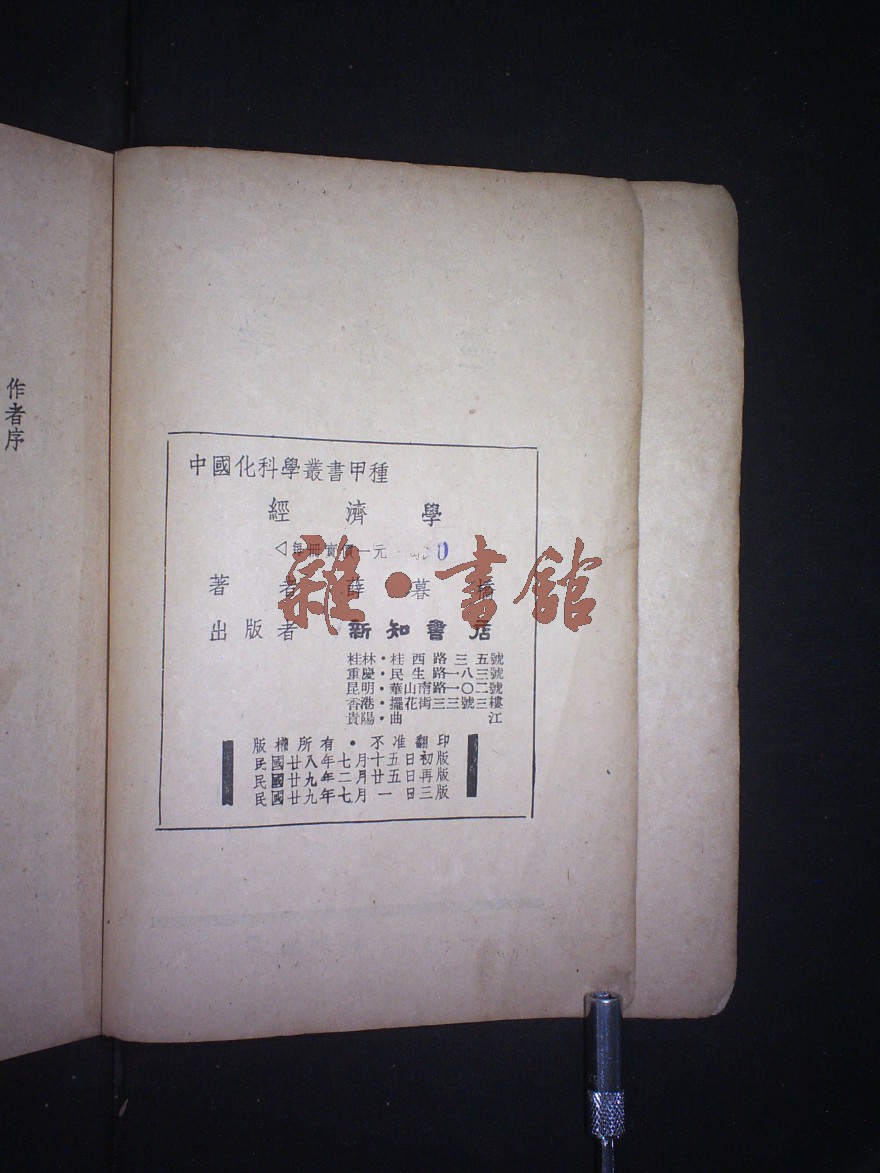 作者序
中國化科學叢書甲種
經濟學
每冊實價一元
0
著者薛暮橋
出版者 新知書店
桂林・桂西路三五號
重慶・民生路一八三號
昆明・華山南路一〇二號
香港・擺花街三三號三樓
貴陽・曲江
版權所有・不准翻印
民國廿八年七月十五日初版
民國廿九年二月廿五日再版
民國廿九年七月一日三版
雜・書館